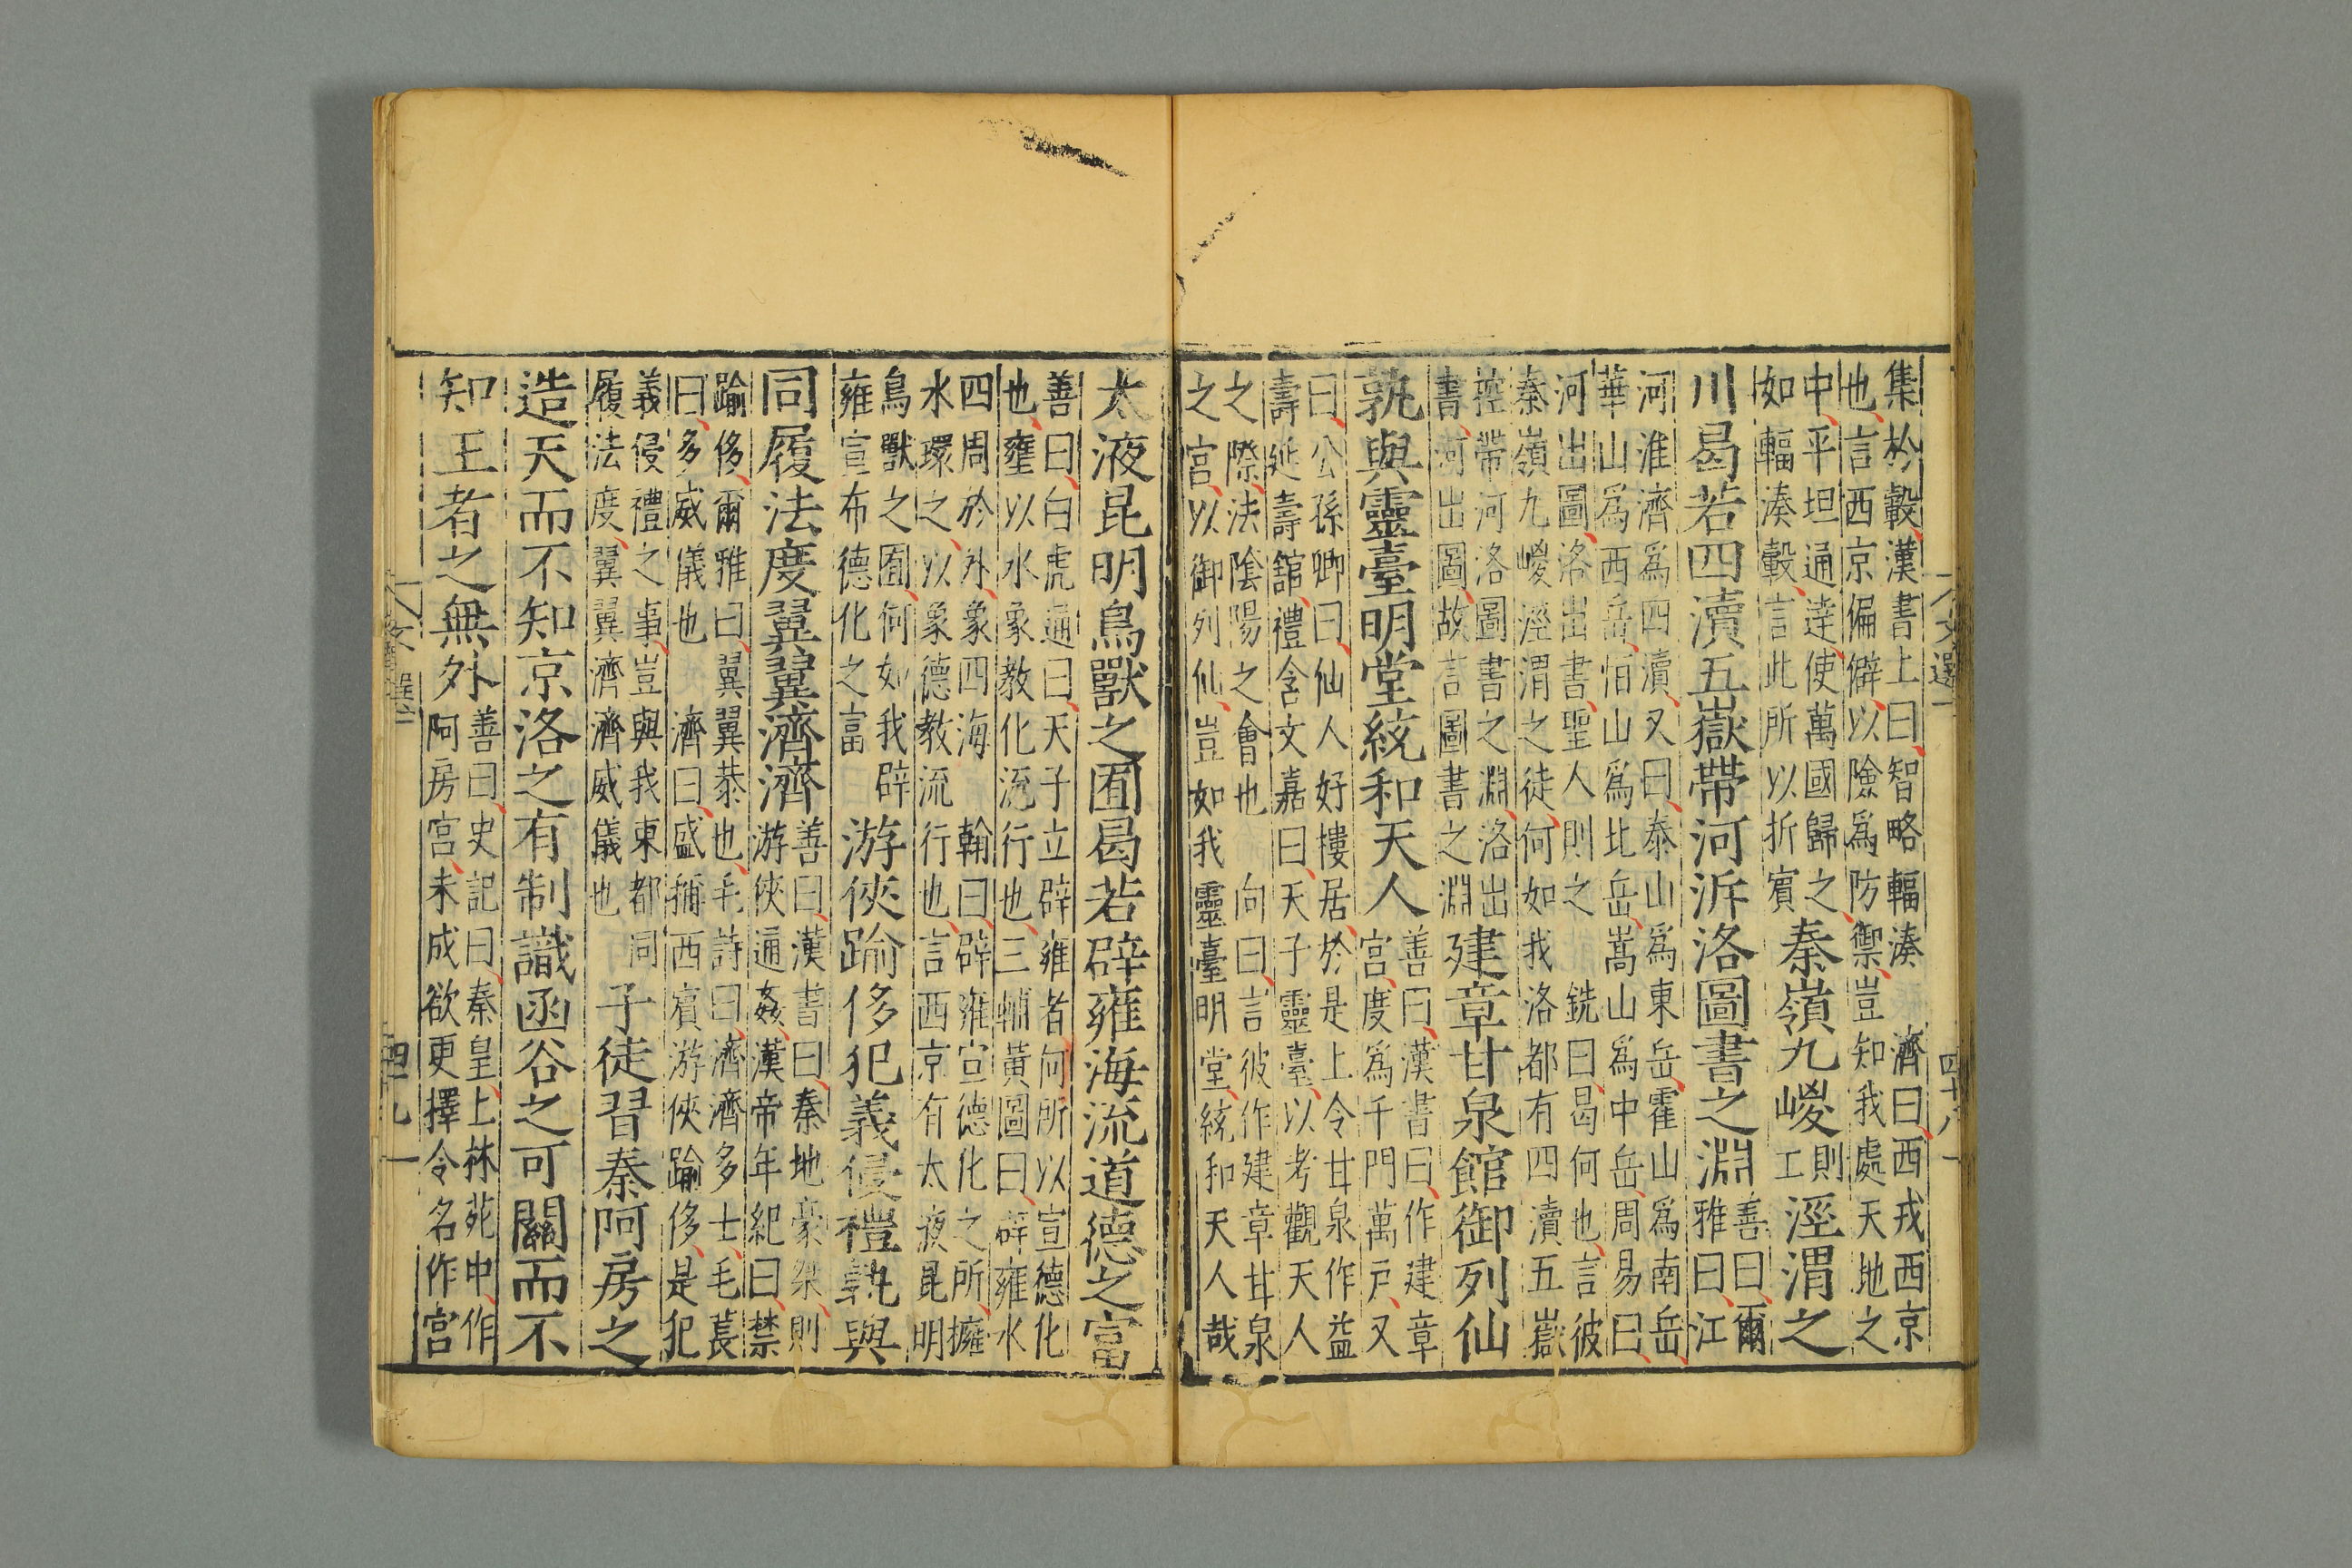 集於轂漢書上曰智略輻湊 濟曰西戎西京
也言西京偏僻以險爲防禦豈知我處天地之
中平坦通達使萬國歸之
如輻湊轂言此所以折賓
秦嶺九嵕
則
工
涇渭之
川曷若四瀆五嶽帶河泝洛圖書之淵
善曰爾
雅曰江
河淮濟爲四瀆又曰泰山爲東岳霍山爲南岳
華山爲西岳恒山爲北岳嵩山爲中岳周易曰
河出圖洛出書聖人則之 銑曰曷何也言彼
秦嶺九嵕涇渭之徒何如我洛都有四瀆五嶽
控帶河洛圖書之淵洛出
書河出圖故言圖書之淵
建章甘泉館御列仙
孰與靈臺明堂統和天人
善曰漢書曰作建章
宮度爲千門萬戶又
曰公孫卿曰仙人好樓居於是上令甘泉作益
壽延壽館禮含文嘉曰天子靈臺以考觀天人
之際法陰陽之會也 向曰言彼作建章甘泉
之宮以御列仙豈如我靈臺明堂統和天人哉
太液昆明鳥獸之囿曷若辟雍海流道德之富
善曰白虎通曰天子立辟雍者何所以宣德化
也壅以水象教化流行也三輔黃圖曰辟雍水
四周於外象四海 翰曰辟雍宣德化之所擁
水環之以象德教流行也言西京有太液昆明
鳥獸之囿何如我辟
雍宣布德化之富
游俠踰侈犯義侵禮孰與
同履法度翼翼濟濟
善曰漢書曰秦地豪桀則
游俠通姦漢帝年紀曰禁
踰侈爾雅曰翼翼恭也毛詩曰濟濟多士毛萇
曰多威儀也 濟曰盛稱西賓游俠踰侈是犯
義侵禮之事豈與我東都同
履法度翼翼濟濟威儀也
子徒習秦阿房之
造天而不知京洛之有制識函谷之可關而不
知王者之無外
善曰史記曰秦皇上林苑中作
阿房宮未成欲更擇令名作宮